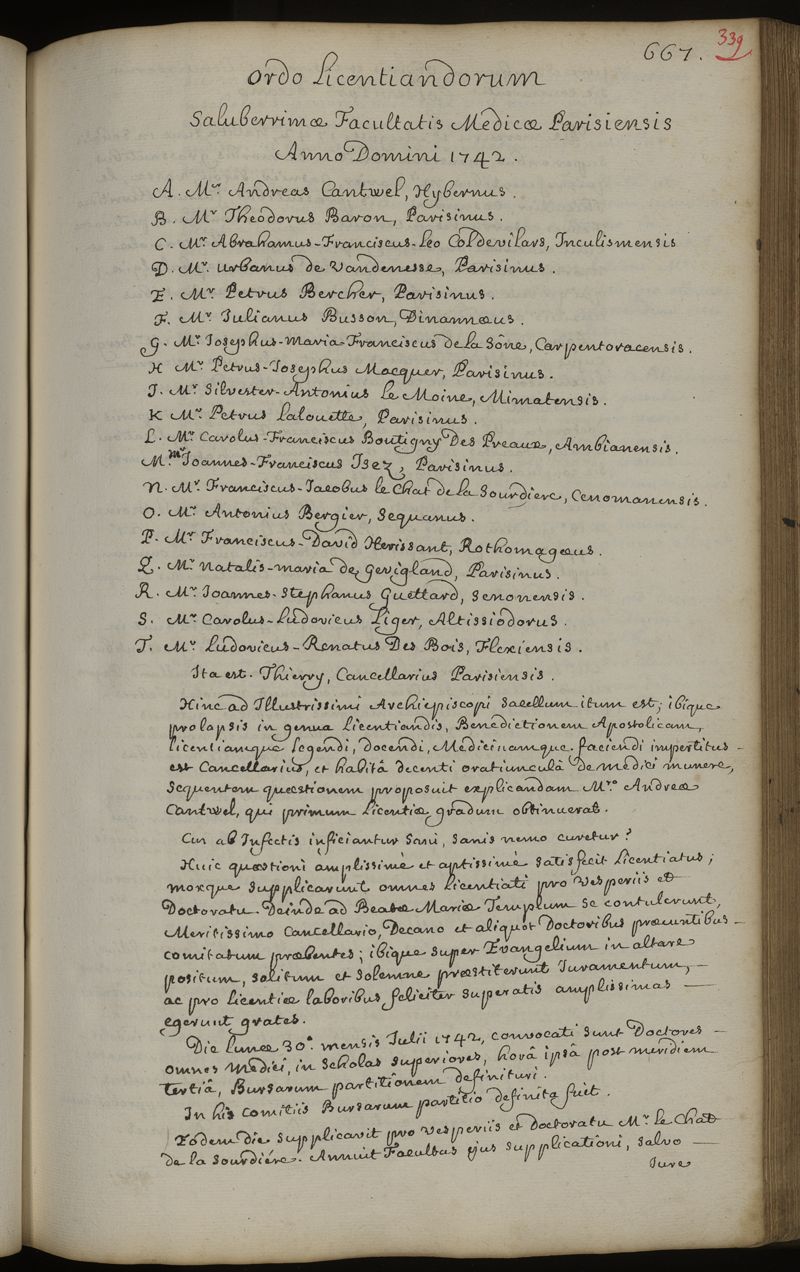 667. 339
Ordo Licentiandorum
Saluberrimæ Facultatis Medicæ Parisiensis
Anno Domini 1742.
A. Mr. Andreas Cantwel, Hybernus.
B. Mr Theodorus Baron, Parisinus.
C. Mr. Abrahamus-Franciscus-Leo Coldevilars, Inculismensis
D. Mr. Urbanus de Vandenesse, Parisinus.
E. Mr. Petrus Bercher, Parisinus.
F. Mr. Julianus Busson, Dinannæus.
G. Mr. Josephus-Maria-Franciscus de la Sône, Carpentoracensis.
H Mr. Petrus-Josephus Macquer, Parisinus.
J. Mr. Silvester-Antonius Le Moine, Mimatensis.
K Mr. Petrus Lalouette, Parisinus.
L. Mr. Carolus-Franciscus Boutigny Des Preaux, Ambianensis.
M. Mr. Joannes-Franciscus Isez, Parisinus.
N. Mr. Franciscus-Jacobus le Chat de la Sourdiere, Cenomanensis.
O. Mr. Antonius Bergier, Sequanus.
P. Mr. Franciscus-David Herissant, Rothomagæus.
Q. Mr. Natalis-Maria de Gevigland, Parisinus.
R. Mr. Joannes-Stephanus Guettard, Senonensis.
S. Mr. Carolus-Ludovicus Liger, Altissiodorus.
T. Mr. Ludovicus-Renatus Des Bois, Flexiensis.
Ita est. Thierry, Cancellarius Parisiensis.
Hinc ad Illustrissimi Archiepiscopi Sacellum itum est; ibique
prolapsis in genua Licentiandis, Benedictionem Apostolicam,
licentiamque legendi, docendi, Medicinamque faciendi impertitus
est Cancellarius, et habitâ decenti oratiunculâ de medici munere,
Sequentem quæstionem proposuit explicandam Mro. Andreæ
Cantwel, qui primum Licentiæ gradum obtinuerat.
Cur ab Infectis inficiantur Sani, Sanis nemo curetur?
Huic quæstioni amplissimè et aptissimè satisfecit Licentiatus;
moxque Supplicarunt omnes Licentiati pro Vesperiis et
Doctoratu. Deinde ad Beatæ Mariæ Templum se contulerunt,
Meritissimo Cancellario, Decano et aliquot Doctoribus præeuntibus
comitatum præbentes; ibique super Evangelium in altare
positum, solitum et solemne præstiterunt Juramentum,
ac pro Licentiæ laboribus feliciter superatis amplissimas
egerunt grates.
Die lunæ 30a. mensis Julii 1742, convocati sunt Doctores
omnes Medici, in Scholas superiores, horâ ipsâ post meridiem
tertiâ, Bursarum partitionem definituri.
In his Comitiis Bursarum partitio definita fuit.
Eôdem die supplicavit pro Vesperiis et doctoratu Mr. le Chat
de la Sourdiére. Annuit Facultas ejus supplicationi, salvo
Jure